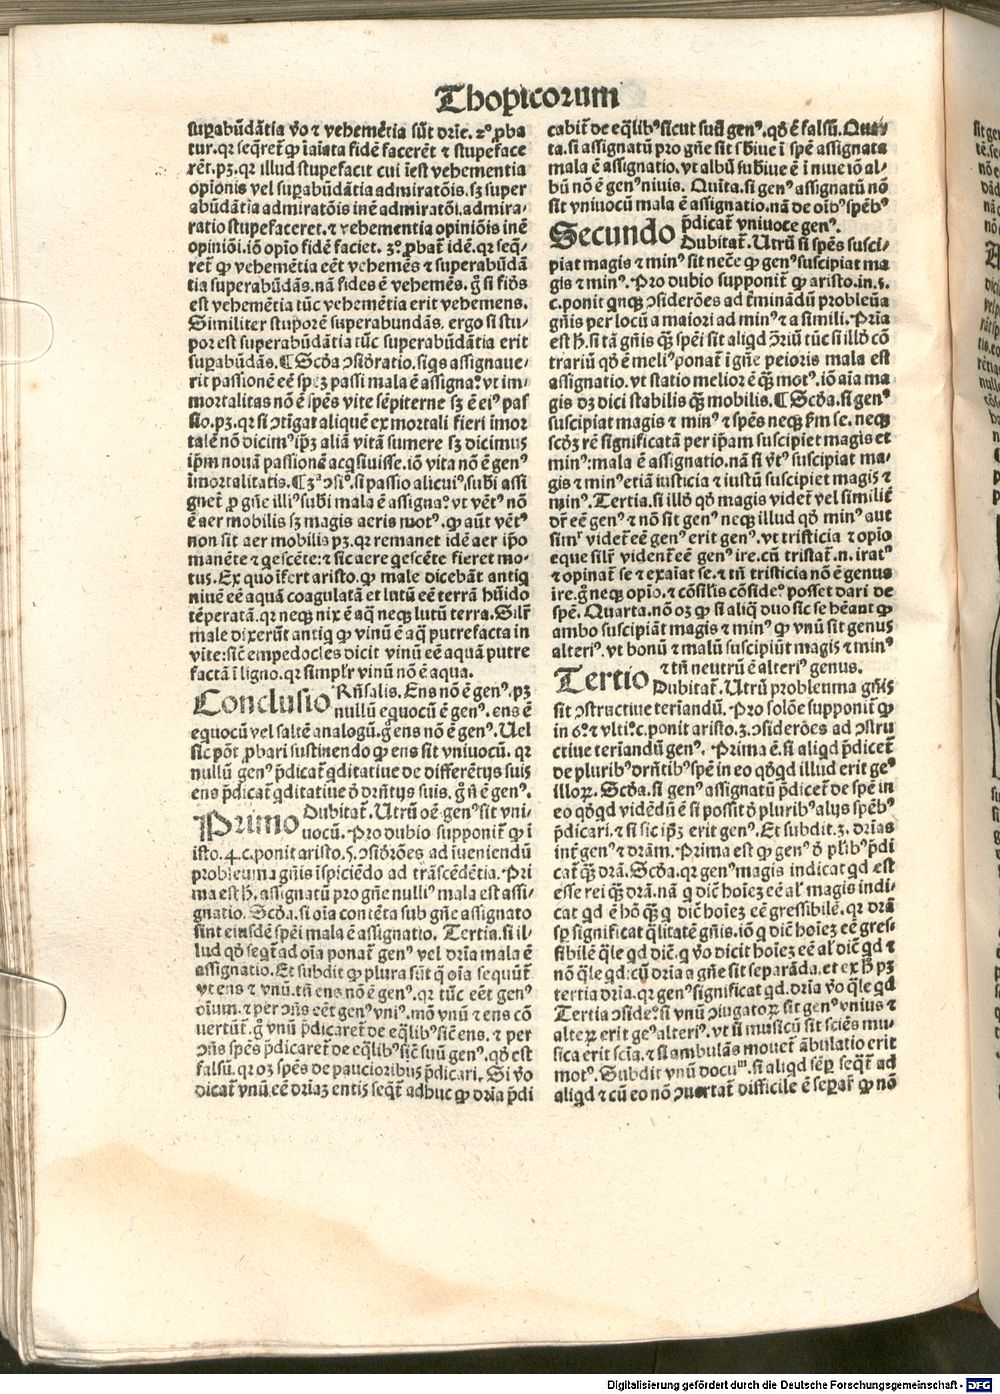 Thopicorum
supabũdãtia v̊o ⁊ vehemẽtia sũt drie. 2° ꝓba
tur. qꝛ seq̃ret̃ ꝙ ĩaĩata fidẽ facerẽt ⁊ stupeface
rẽt. pꝫ. qꝛ illud stupefacit cui ĩest vehementia
opĩonis vel supabũdãtia admiratõis. sꝫ super
abũdãtia admiratõis inẽ admiratõi. admira⸗
ratio stupefaceret. ⁊ vehementia opiniõis inẽ
opiniõi. iõ opĩo fidẽ faciet. 3° ꝓbat̃ idẽ. qꝛ seq̃⸗
ret̃ ꝙ vehemẽtia eẽt vehemẽs ⁊ superabũdã
tia superabũdãs. nã fides ẽ vehemẽs. g̊ si fiđs
est vehemẽtia tũc vehemẽtia erit vehemens.
Similiter stuporẽ superabundãs. ergo si stu⸗
por est superabũdãtia tũc superabũdãtia erit
supabũdãs. ¶ Scđa ↄsiđratio. si q̃s assignaue⸗
rit passionẽ eẽ spẽꝫ passi mala ẽ assigna°. vt im⸗
mortalitas nõ ẽ spẽs vite sẽpiterne sꝫ ẽ ei⁹ pas
sio. pꝫ. qꝛ si ↄtĩgat aliquẽ ex mortali fieri ĩmor
talẽ nõ dicim⁹ ip̃ꝫ aliã vitã sumere sꝫ dicimus
ip̃m nouã passionẽ acq̃siuisse. iõ vita nõ ẽ gen⁹
ĩmortalitatis. ¶ 3ª ↄsi°. si passio alicui⁹ subĩ assi
gnet̃ ꝓ gñe illi⁹ subĩ mala ẽ assigna° vt vẽt⁹ nõ
ẽ aer mobilis sꝫ magis aeris mot⁹. ꝙ aũt vẽt⁹
non sit aer mobilis pꝫ. qꝛ remanet idẽ aer ip̃o
manẽte ⁊ q̃escẽte: ⁊ sic aere q̃escẽte fieret mo⸗
tus. Ex quo ĩfert aristo. ꝙ male dicebãt antiq̃
niuẽ eẽ aquã coagulatã et lutũ eẽ terrã hũido
tẽperatã. qꝛ neqꝫ nix ẽ aq̃ neqꝫ lutũ terra. Silr̃
male dixerũt antiq̃ ꝙ vinũ ẽ aq̃ putrefacta in
vite: sic̃ empedocles dicit vinũ eẽ aquã putre
factã ĩ ligno. qꝛ simplr̃ vinũ nõ ẽ aqua.
Conclusio Rñsalis. Ens nõ ẽ gen⁹. pꝫ
nullũ equocũ ẽ gen⁹. ens ẽ
equocũ vel saltẽ analogũ. g̊ ens nõ ẽ gen⁹. Uel
sic põt ꝓbari sustinendo ꝙ ens sit vniuocũ. qꝛ
nullũ gen⁹ p̃dicat̃ q̃ditatiue de differẽtijs suis
ens p̃dicat̃ q̃ditatiue đ drñtijs suis. g̊ ñ ẽ gen⁹.
Primo Dubitat̃. Utrũ oẽ gen⁹ sit vni⸗
uocũ. Pro dubio supponit̃ ꝙ ĩ
isto. 4. c. ponit aristo. 5. ↄsiđrões ad ĩueniendũ
probleuma gñis ĩspiciẽdo ad trãscẽdẽtia. Pri
ma est h̃. assignatũ pro gñe nulli⁹ mala est assi⸗
gnatio. Scđa. si oĩa contẽta sub gñe assignato
sint eiusdẽ spẽi mala ẽ assignatio. Tertia. si il⸗
lud qđ seq̃t̃ ad oĩa ponat̃ gen⁹ vel dr̃ia mala ẽ
assignatio. Et subdit ꝙ plura sũt q̃ oĩa sequũt̃
vt ens ⁊ vnũ. tñ ens nõ ẽ gen⁹. qꝛ tũc eẽt gen⁹
oĩum. ⁊ per ↄñs eẽt gen⁹ vni⁹. mõ vnũ ⁊ ens cõ
uertũt̃. g̊ vnũ p̃dicaret̃ de eq̃lib⁹ sic̃ ens. ⁊ per
ↄñs spẽs p̃dicaret̃ de eq̃lib⁹ sic̃ suũ gen⁹. qđ est
falsũ. qꝛ oꝫ spẽs de paucioribus p̃dicari. Si v̊o
dicat̃ vnũ eẽ dr̃iaꝫ entis seq̃t̃ adhuc ꝙ dr̃ia p̃di
cabit̃ de eq̃lib⁹ sicut suũ gen⁹. qđ ẽ falsũ. Quar
ta. si assignatũ pro gñe sit s̃biue ĩ spẽ assignata
mala ẽ assignatio. vt albũ subĩue ẽ ĩ niue iõ al⸗
bũ nõ ẽ gen⁹ niuis. Quĩta. si gen⁹ assignatũ nõ
sit vniuocũ mala ẽ assignatio. nã de oĩb⁹ spẽb⁹
p̃dicat̃ vniuoce gen⁹.
Secundo Dubitat̃. Utrũ si spẽs susci⸗
piat magis ⁊ min⁹ sit nec̃e ꝙ gen⁹ suscipiat ma
gis ⁊ min⁹. Pro dubio supponit̃ ꝙ aristo. in. 5.
c. ponit q̃nqꝫ ↄsiderões ad t̃minãdũ probleũa
gñis per locũ a maiori ad min⁹ ⁊ a simili. Pr̃ia
est h̃. si tã gñis q̃ꝫ spẽi sit aliqđ ↄ̃riũ tũc si illđ cõ
trariũ qđ ẽ meli⁹ ponat̃ ĩ gñe peioris mala est
assignatio. vt statio melior ẽ q̃ꝫ mot⁹. iõ aĩa ma
gis dꝫ dici stabilis q̃ꝫ mobilis. ¶ Scđa. si gen⁹
suscipiat magis ⁊ min⁹ ⁊ spẽs neqꝫ s̃m se. neqꝫ
scđꝫ rẽ significatã per ip̃am suscipiet magis et
min⁹: mala ẽ assignatio. nã si v̊t⁹ suscipiat ma⸗
gis ⁊ min⁹ etiã iusticia ⁊ iustũ suscipiet magis ⁊
min⁹. Tertia. si illđ qđ magis videt̃ vel similit̃
dr̃ eẽ gen⁹ ⁊ nõ sit gen⁹ neqꝫ illud qđ min⁹ aut
sim̃ videt̃ eẽ gen⁹ erit gen⁹. vt tristicia ⁊ opĩo
eque silr̃ vident̃ eẽ gen⁹ ire. cũ tristat̃. n. irat⁹
⁊ opinat̃ se ⁊ exaĩat se. ⁊ tñ tristicia nõ ẽ genus
ire. g̊ neqꝫ opĩo. ⁊ cõsilis cõside° posset dari de
spẽ. Quarta. nõ oꝫ ꝙ si aliq̃ duo sic se hẽant ꝙ
ambo suscipiãt magis ⁊ min⁹ ꝙ vnũ sit genus
alteri⁹. vt bonũ ⁊ malũ suscipiũt magis ⁊ min⁹
⁊ tñ neutrũ ẽ alteri⁹ genus.
Tertio Dubitat̃. Utrũ probleuma gñis
sit ↄstructiue teriandũ. Pro solõe supponit̃ ꝙ
in 6° ⁊ vlti° c. ponit aristo. 3. ↄsiderões ad ↄstru
ctiue teriandũ gen⁹. Prima ẽ. si aliqđ p̃dicet̃
de plurib⁹ drñtib⁹ spẽ in eo qđqđ illud erit ge⁹
illoꝝ. Scđa. si gen⁹ assignatũ p̃dicet̃ de spẽ in
eo qđqđ vidẽdũ ẽ si possit đ plurib⁹ alijs spẽb⁹
p̃dicari. ⁊ si sic ip̃ꝫ erit gen⁹. Et subdit. 3. dr̃ias
int̃ gen⁹ ⁊ dr̃am. Prima est ꝙ gen⁹ đ pl̃ib⁹ p̃di
cat̃ q̃ꝫ dr̃a. Scđa. qꝛ gen⁹ magis indicat qđ est
esse rei q̃ꝫ dr̃a. nã q̃ dic̃ hoĩeꝫ eẽ al̃ magis indi⸗
cat qđ ẽ hõ q̃ꝫ q̃ dic̃ hoĩeꝫ eẽ gressibilẽ. qꝛ dr̃a
sp̃ significat q̃litatẽ gñis. iõ q̃ dic̃ hoĩeꝫ eẽ gres⸗
sibilẽ q̃le qđ dic̃. q̃ v̊o dicit hoĩeꝫ eẽ al̃ dic̃ qđ ⁊
nõ q̃le qđ: cũ dr̃ia a gñe sit separãda. et ex h̃ pꝫ
tertia dr̃ia. qꝛ gen⁹ significat qđ. dr̃ia v̊o q̃le qđ
Tertia ↄside° si vnũ ↄiugatoꝝ sit gen⁹ vnius ⁊
alteꝝ erit ge⁹ alteri⁹. vt si musicũ sit sciẽs mu⸗
sica erit scĩa. ⁊ si ambulãs mouet̃ ãbulatio erit
mot⁹. Subdit vnũ docuᵐ. si aliqđ sẽp seq̃t̃ ad
aliqđ ⁊ cũ eo nõ ↄuertat̃ difficile ẽ sepat̃ ꝙ nõ
Digitalisierung gefördert durch die Deutsche Forschungsgemeinschaft - DFG